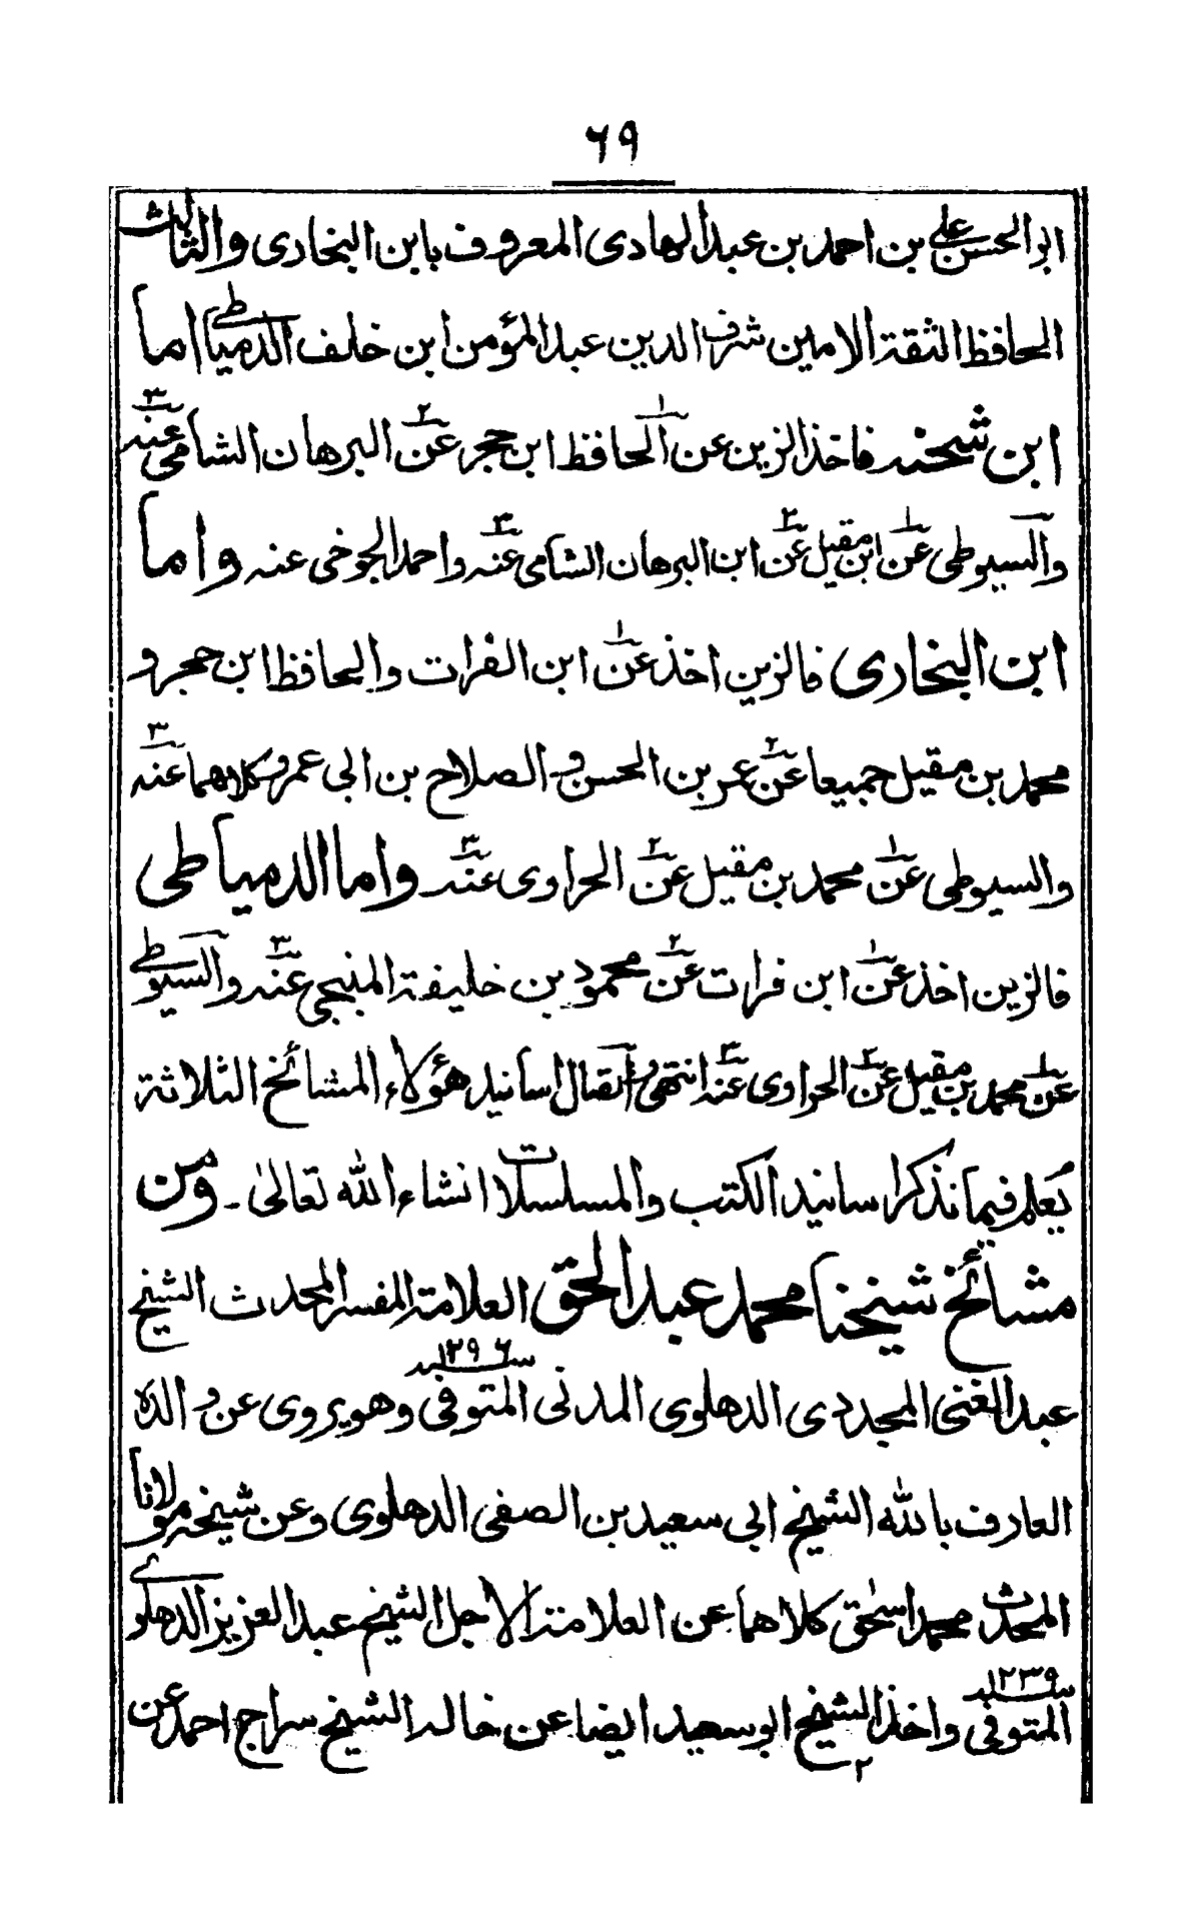 ٦٩
ابو الحسن علي بن احمد بن عبد الهادى المعروف بابن البخارى والثالث
الحافظ الثقة الامين شرف الدين عبد المؤمن ابن خلف الدمياطي اما
ابن شحنه فاخذ الزين عن١ الحافظ ابن حجر عن٢ البرهان الشامى عنه٣
والسيوطى عن١ ابن مقبل عن٢ ابن البرهان الشامى عنه٣ واحمد الجوخى عنه واما
ابن البخارى فالزين اخذ عن١ ابن الفرات والحافظ ابن حجر و
محمد بن مقبل جميعا عن٢ عمر بن الحسن و الصلاح بن ابى عمرو كلاهما عنه٣
والسيوطى عن١ محمد بن مقبل عن٢ الحراوى عنه٣ واما الدمياطى
فالزين اخذ عن١ ابن فرات عن٢ محمود بن خليفة المنبجى عنه٣ والسيوطي
عن١ محمد بن مقبل عن٢ الحراوى عنه٣ انتهى واتصال اسانيد هؤلاء المشائخ الثلاثة
يعلم فيما نذكر اسانيد الكتب والمسلسلات انشاء الله تعالىٰ ۔ ومن
مشائخ شيخنا محمد عبد الحق العلامة المفسر المحدث الشيخ
عبد الغنى المجددى الدهلوى المدنى المتوفى سنه ١٢٩٦ وهو يروى عن والده
العارف بالله الشيخ ابى سعيد بن الصفى الدهلوى وعن شيخه مولانا
المحدث محمد اسحٰق كلاهما عن العلامة الاجل الشيخ عبد العزيز الدهلوى
المتوفى سنه ١٢٣٩ واخذ الشيخ ابو سعيد ايضا عن خاله الشيخ سراج احمد عن
٢